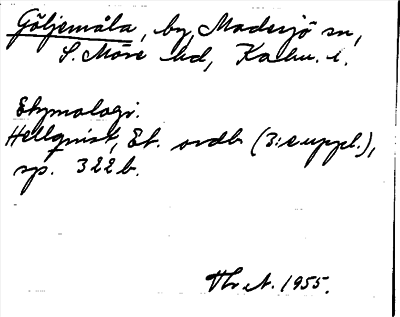 Göljemåla, by, Madesjö sn,
S. Möre hd, Kalm. l.
Etymologi.
Hellquist, Et. ordb (3:e uppl.),
sp. 322 b.
1955.